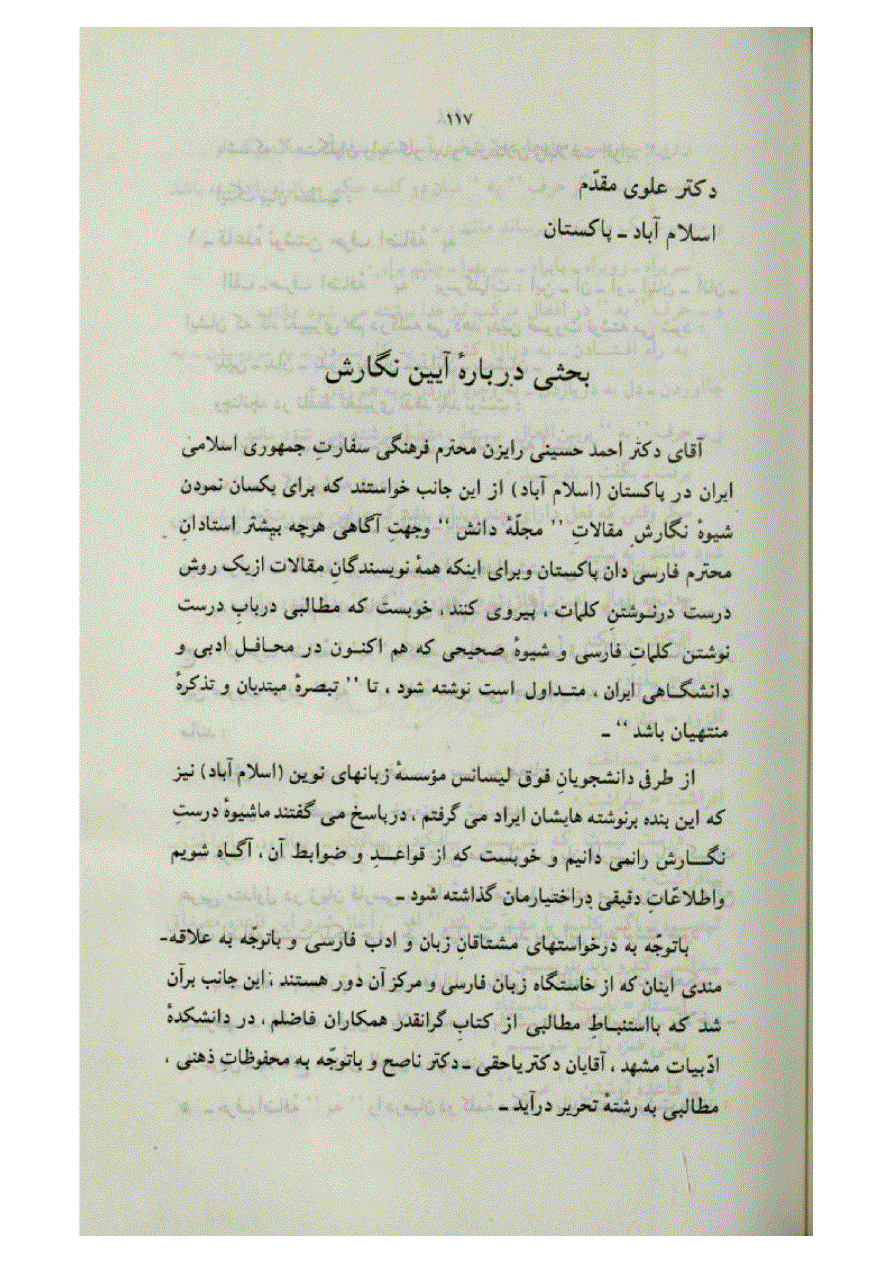 ۱۱۷
دکتر علوی مقدّم
اسلام آباد ـ پاکستان
بحثی دربارهٔ آیین نگارش
آقای دکتر احمد حسینی رایزن محترم فرهنگی سفارتِ جمهوری اسلامی
ایران در پاکستان (اسلام آباد) از این جانب خواستند که برای یکسان نمودن
شیوهٔ نگارش مقالاتِ ’’ مجلّهٔ دانش ‘‘ وجهتِ آگاهی هرچه بیشتر استادانِ
محترم فارسی دان پاکستان وبرای اینکه همهٔ نویسندگانِ مقالات ازیک روش
درست درنوشتنِ کلمات ، پیروی کنند، خوبست که مطالبی دربابِ درست
نوشتن کلماتِ فارسی و شیوهٔ صحیحی که هم اکنون در محافل ادبی و
دانشگاهی ایران ، متداول است نوشته شود ، تا ’’ تبصرهٔ مبتدیان و تذکرهٔ
منتهیان باشد ‘‘ ـ
از طرفی دانشجویانِ فوق لیسانس مؤسسهٔ زبانهای نوین (اسلام آباد) نیز
که این بنده برنوشته هایشان ایراد می گرفتم ، درپاسخ می گفتند ماشیوهٔ درستِ
نگارش رانمی دانیم و خوبست که از قواعدِ و ضوابط آن ، آگاه شویم
واطلاعّاتِ دقیقی دراختیارمان گذاشته شود ـ
باتوجّه به درخواستهای مشتاقانِ زبان و ادب فارسی و باتوجّه به علاقه ـ
مندی اینان که از خاستگاه زبان فارسی و مرکز آن دور هستند ، این جانب برآن
شد که بااستنباطِ مطالبی از کتابِ گرانقدر همکاران فاضلم ، در دانشکدهٔ
ادّبیات مشهد ، آقایان دکتر یاحقی ـ دکتر ناصح و باتوجّه به محفوظاتِ ذهنی ،
مطالبی به رشتهٔ تحریر درآید ـ